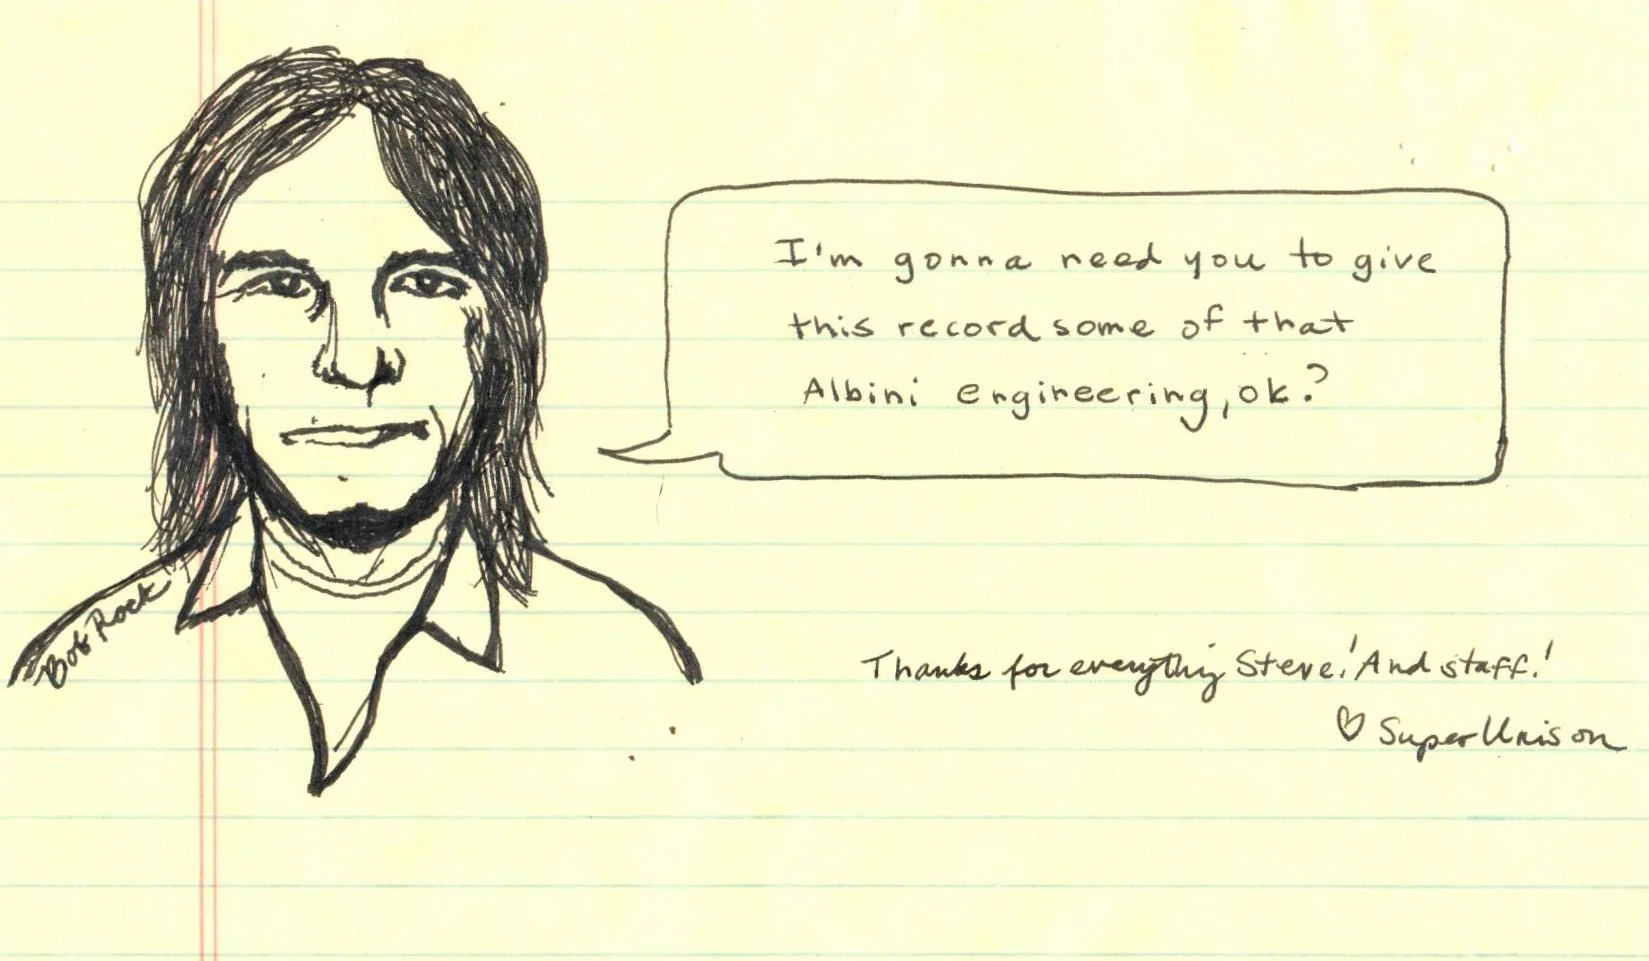 I'm gonna need you to give
this record some of that
Albini engineering, ok?
Bob Rock
Thanks for everything Steve! And staff!
♡ Super Unison